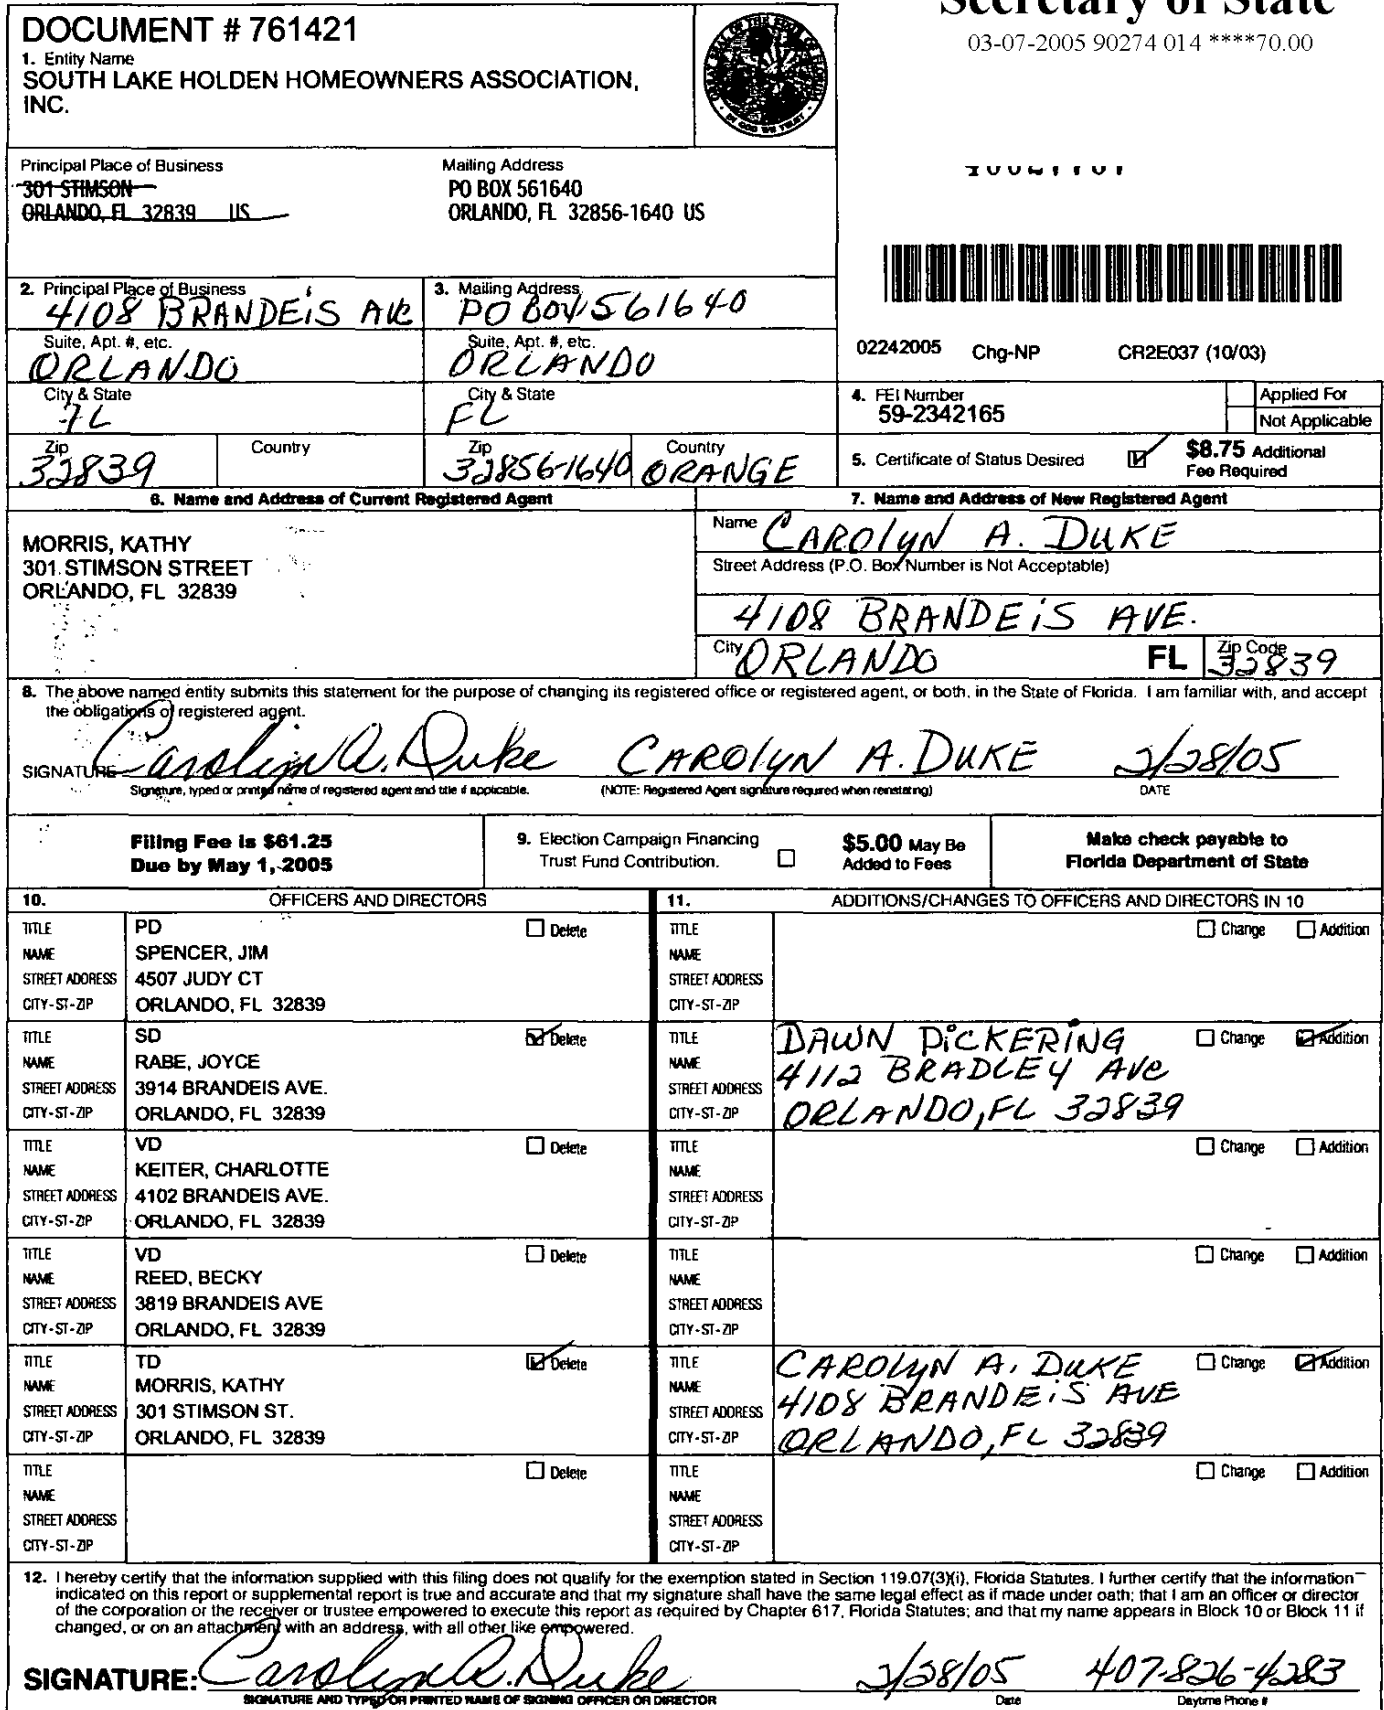 Secretary of State
03-07-2005 90274 014 ****70.00
DOCUMENT # 761421
1. Entity Name
SOUTH LAKE HOLDEN HOMEOWNERS ASSOCIATION,
INC.
Principal Place of Business
301 STIMSON
ORLANDO, FL 32839 US
Mailing Address
PO BOX 561640
ORLANDO, FL 32856-1640 US
2. Principal Place of Business
4108 BRANDEIS AVE
Suite, Apt. #, etc.
ORLANDO
City & State
FL
Zip
32839
Country
3. Mailing Address
PO BOX 561640
Suite, Apt. #, etc.
ORLANDO
City & State
FL
Zip
32856-1640
Country
ORANGE
02242005 Chg-NP CR2E037 (10/03)
4. FEI Number
59-2342165
Applied For
Not Applicable
5. Certificate of Status Desired
$8.75 Additional
Fee Required
6. Name and Address of Current Registered Agent
MORRIS, KATHY
301 STIMSON STREET
ORLANDO, FL 32839
7. Name and Address of New Registered Agent
Name CAROLYN A. DUKE
Street Address (P.O. Box Number is Not Acceptable)
4108 BRANDEIS AVE.
City ORLANDO FL Zip Code 32839
8. The above named entity submits this statement for the purpose of changing its registered office or registered agent, or both, in the State of Florida. I am familiar with, and accept
the obligations of registered agent.
SIGNATURE Carolyn A. Duke CAROLYN A. DUKE 2/28/05
Signature, typed or printed name of registered agent and title if applicable. (NOTE: Registered Agent signature required when reinstating) DATE
Filing Fee is $61.25
Due by May 1, 2005
9. Election Campaign Financing
Trust Fund Contribution.
$5.00 May Be
Added to Fees
Make check payable to
Florida Department of State
10. OFFICERS AND DIRECTORS
11. ADDITIONS/CHANGES TO OFFICERS AND DIRECTORS IN 10
TITLE PD Delete
NAME SPENCER, JIM
STREET ADDRESS 4507 JUDY CT
CITY-ST-ZIP ORLANDO, FL 32839
TITLE Change Addition
NAME
STREET ADDRESS
CITY-ST-ZIP
TITLE SD Delete
NAME RABE, JOYCE
STREET ADDRESS 3914 BRANDEIS AVE.
CITY-ST-ZIP ORLANDO, FL 32839
TITLE DAWN PICKERING Change Addition
NAME 4112 BRADLEY AVE
STREET ADDRESS
CITY-ST-ZIP ORLANDO, FL 32839
TITLE VD Delete
NAME KEITER, CHARLOTTE
STREET ADDRESS 4102 BRANDEIS AVE.
CITY-ST-ZIP ORLANDO, FL 32839
TITLE Change Addition
NAME
STREET ADDRESS
CITY-ST-ZIP
TITLE VD Delete
NAME REED, BECKY
STREET ADDRESS 3819 BRANDEIS AVE
CITY-ST-ZIP ORLANDO, FL 32839
TITLE Change Addition
NAME
STREET ADDRESS
CITY-ST-ZIP
TITLE TD Delete
NAME MORRIS, KATHY
STREET ADDRESS 301 STIMSON ST.
CITY-ST-ZIP ORLANDO, FL 32839
TITLE CAROLYN A. DUKE Change Addition
NAME
STREET ADDRESS 4108 BRANDEIS AVE
CITY-ST-ZIP ORLANDO, FL 32839
TITLE Delete
NAME
STREET ADDRESS
CITY-ST-ZIP
TITLE Change Addition
NAME
STREET ADDRESS
CITY-ST-ZIP
12. I hereby certify that the information supplied with this filing does not qualify for the exemption stated in Section 119.07(3)(i), Florida Statutes. I further certify that the information
indicated on this report or supplemental report is true and accurate and that my signature shall have the same legal effect as if made under oath; that I am an officer or director
of the corporation or the receiver or trustee empowered to execute this report as required by Chapter 617, Florida Statutes; and that my name appears in Block 10 or Block 11 if
changed, or on an attachment with an address, with all other like empowered.
SIGNATURE: Carolyn A. Duke 2/28/05 407-826-4283
SIGNATURE AND TYPED OR PRINTED NAME OF SIGNING OFFICER OR DIRECTOR Date Daytime Phone #